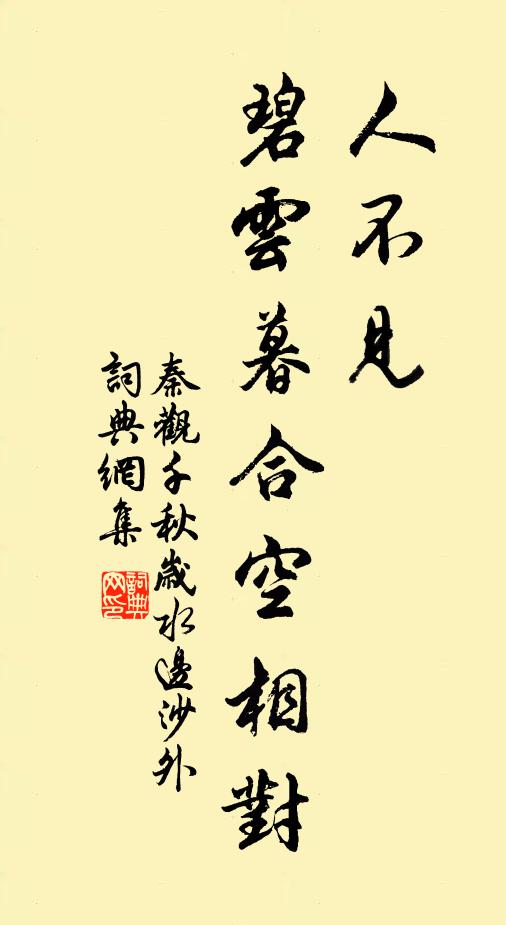 人不見
碧雲暮合空相對
秦觀千秋歲水邊沙外
詞典網集
詞典网印